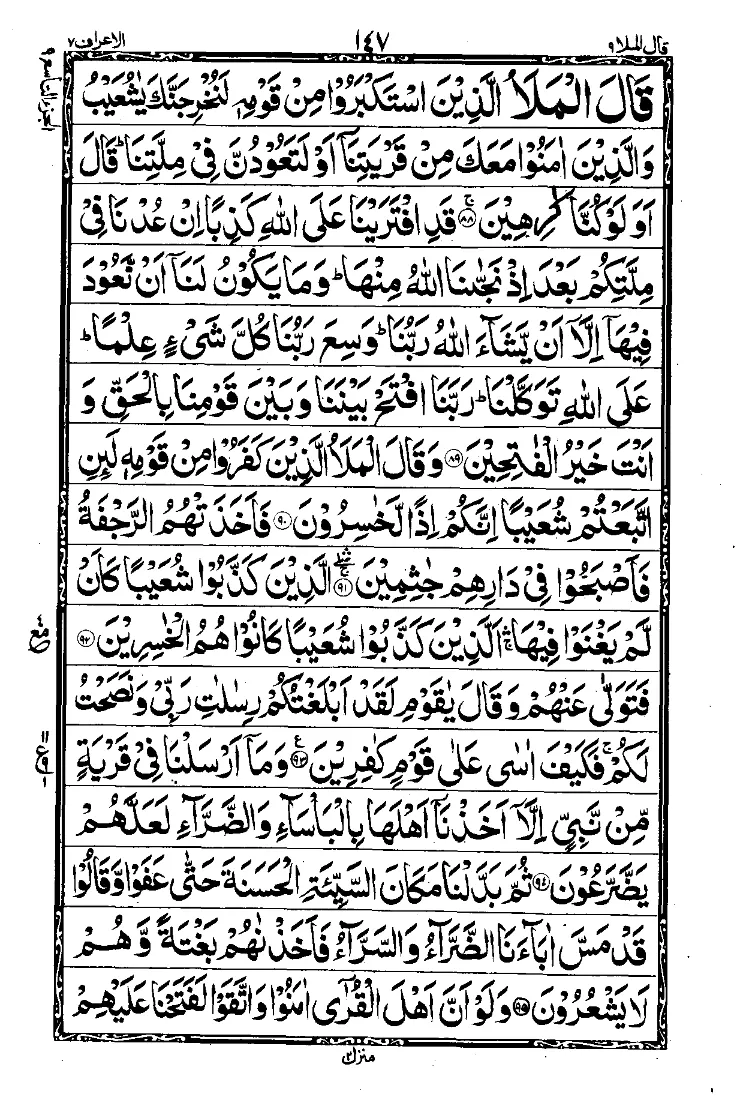 قال الملا ٩
١٤٧
الاعراف ٧
قَالَ الْمَلَاُ الَّذِيْنَ اسْتَكْبَرُوْا مِنْ قَوْمِهٖ لَنُخْرِجَنَّكَ يٰشُعَيْبُ
وَالَّذِيْنَ اٰمَنُوْا مَعَكَ مِنْ قَرْيَتِنَاۤ اَوْ لَتَعُوْدُنَّ فِيْ مِلَّتِنَا ؕ قَالَ
اَوَ لَوْ كُنَّا كٰرِهِيْنَ ۚ ﴿٨٨﴾ قَدِ افْتَرَيْنَا عَلَى اللّٰهِ كَذِبًا اِنْ عُدْنَا فِيْ
مِلَّتِكُمْ بَعْدَ اِذْ نَجّٰىنَا اللّٰهُ مِنْهَا ؕ وَمَا يَكُوْنُ لَنَاۤ اَنْ نَّعُوْدَ
فِيْهَاۤ اِلَّاۤ اَنْ يَّشَآءَ اللّٰهُ رَبُّنَا ؕ وَسِعَ رَبُّنَا كُلَّ شَيْءٍ عِلْمًا ؕ
عَلَى اللّٰهِ تَوَكَّلْنَا ؕ رَبَّنَا افْتَحْ بَيْنَنَا وَبَيْنَ قَوْمِنَا بِالْحَقِّ وَ
اَنْتَ خَيْرُ الْفٰتِحِيْنَ ﴿٨٩﴾ وَقَالَ الْمَلَاُ الَّذِيْنَ كَفَرُوْا مِنْ قَوْمِهٖ لَئِنِ
اتَّبَعْتُمْ شُعَيْبًا اِنَّكُمْ اِذًا لَّخٰسِرُوْنَ ﴿٩٠﴾ فَاَخَذَتْهُمُ الرَّجْفَةُ
فَاَصْبَحُوْا فِيْ دَارِهِمْ جٰثِمِيْنَ ﴿٩١﴾ الَّذِيْنَ كَذَّبُوْا شُعَيْبًا كَاَنْ
لَّمْ يَغْنَوْا فِيْهَا ۚ اَلَّذِيْنَ كَذَّبُوْا شُعَيْبًا كَانُوْا هُمُ الْخٰسِرِيْنَ ﴿٩٢﴾
فَتَوَلّٰى عَنْهُمْ وَقَالَ يٰقَوْمِ لَقَدْ اَبْلَغْتُكُمْ رِسٰلٰتِ رَبِّيْ وَنَصَحْتُ
لَكُمْ ۚ فَكَيْفَ اٰسٰى عَلٰى قَوْمٍ كٰفِرِيْنَ ﴿٩٣﴾ وَمَاۤ اَرْسَلْنَا فِيْ قَرْيَةٍ
مِّنْ نَّبِيٍّ اِلَّاۤ اَخَذْنَاۤ اَهْلَهَا بِالْبَاْسَآءِ وَالضَّرَّآءِ لَعَلَّهُمْ
يَضَّرَّعُوْنَ ﴿٩٤﴾ ثُمَّ بَدَّلْنَا مَكَانَ السَّيِّئَةِ الْحَسَنَةَ حَتّٰى عَفَوْا وَّقَالُوْا
قَدْ مَسَّ اٰبَآءَنَا الضَّرَّآءُ وَالسَّرَّآءُ فَاَخَذْنٰهُمْ بَغْتَةً وَّهُمْ
لَا يَشْعُرُوْنَ ﴿٩٥﴾ وَلَوْ اَنَّ اَهْلَ الْقُرٰۤى اٰمَنُوْا وَاتَّقَوْا لَفَتَحْنَا عَلَيْهِمْ
منزل ٢
الجزء التاسع ٩
مع